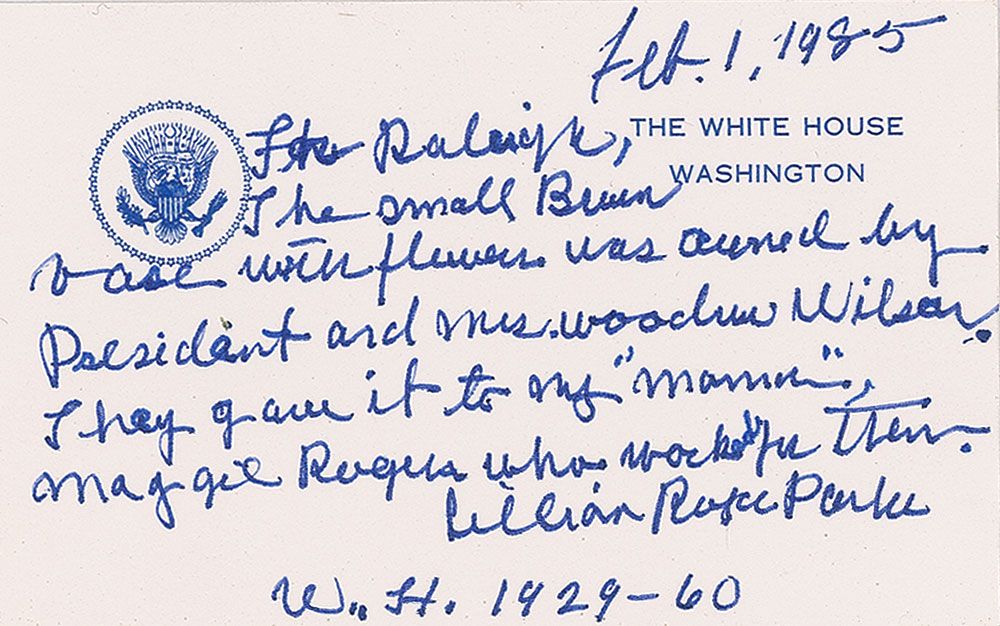 Feb. 1, 1985
THE WHITE HOUSE
WASHINGTON
For Raleigh,
The small Brown
vase with flowers was owned by
President and Mrs. Woodrow Wilson.
They gave it to my "mama",
Maggie Rogers who worked for them.
Lillian Rogers Parks
W.. H. 1929-60